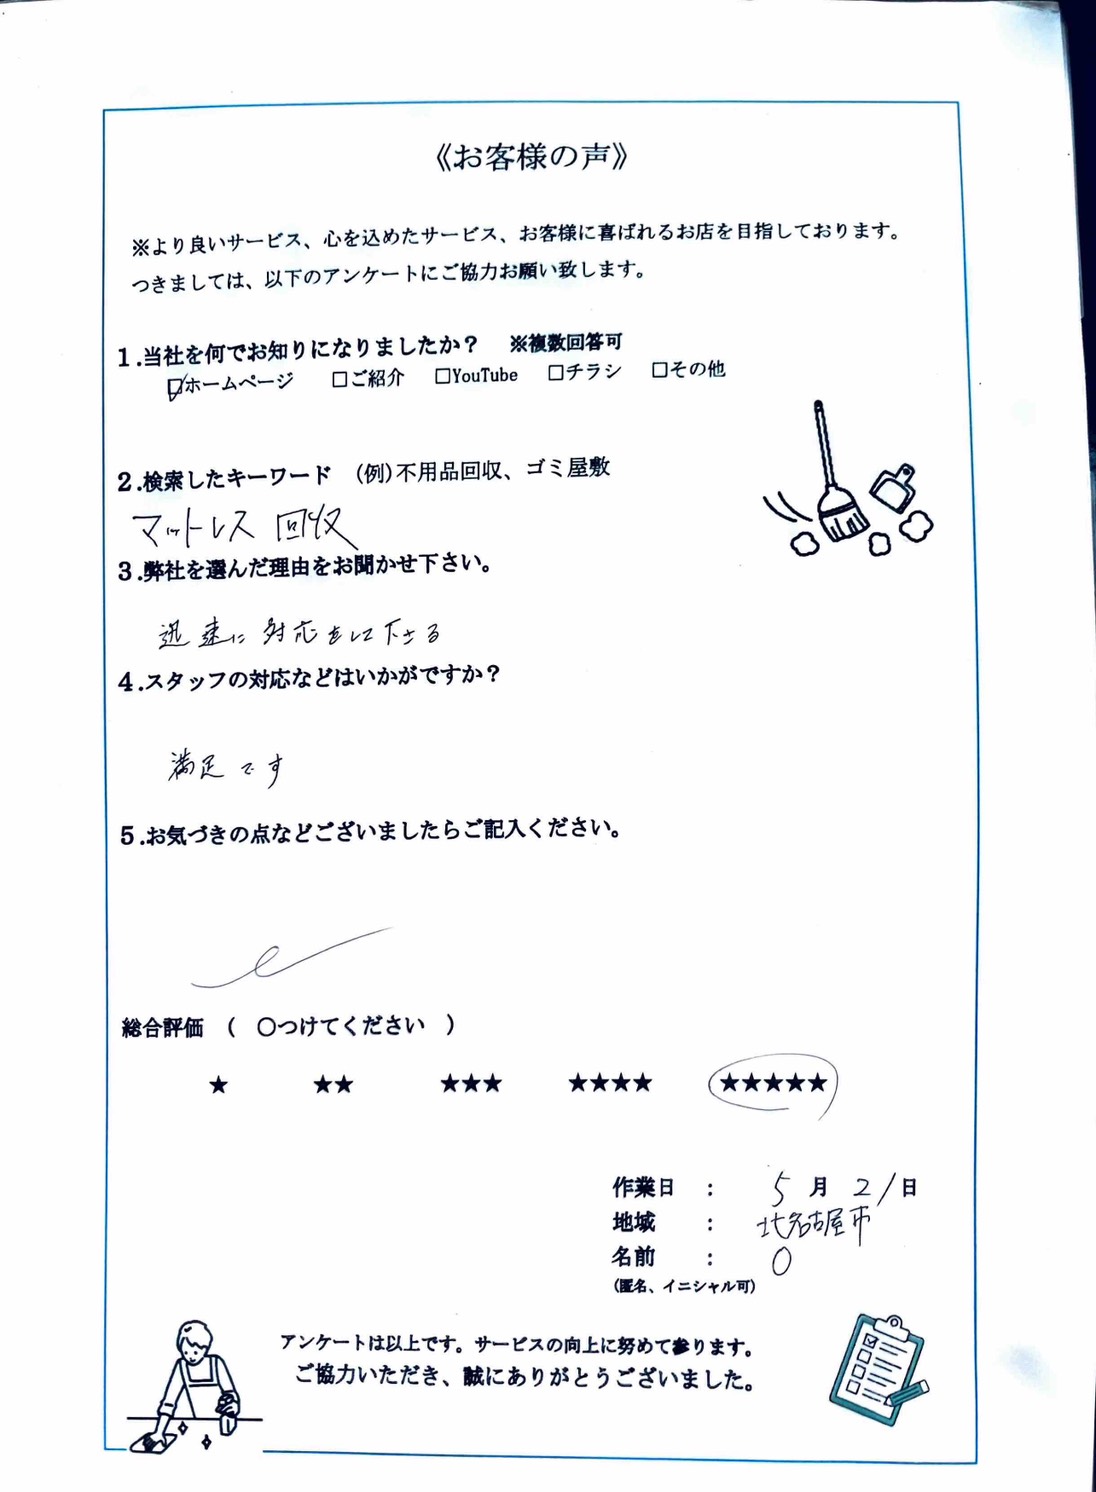 《お客様の声》
※より良いサービス、心を込めたサービス、お客様に喜ばれるお店を目指しております。
つきましては、以下のアンケートにご協力お願い致します。
1.当社を何でお知りになりましたか？　※複数回答可
☑ホームページ　□ご紹介　□YouTube　□チラシ　□その他
2.検索したキーワード　(例)不用品回収、ゴミ屋敷
マットレス 回収
3.弊社を選んだ理由をお聞かせ下さい。
迅速に対応をして下さる
4.スタッフの対応などはいかがですか？
満足です
5.お気づきの点などございましたらご記入ください。
総合評価　(　〇つけてください　)
★　★★　★★★　★★★★　★★★★★
作業日　：　5月21日
地域　：　北名古屋市
名前　：　O
(匿名、イニシャル可)
アンケートは以上です。サービスの向上に努めて参ります。
ご協力いただき、誠にありがとうございました。